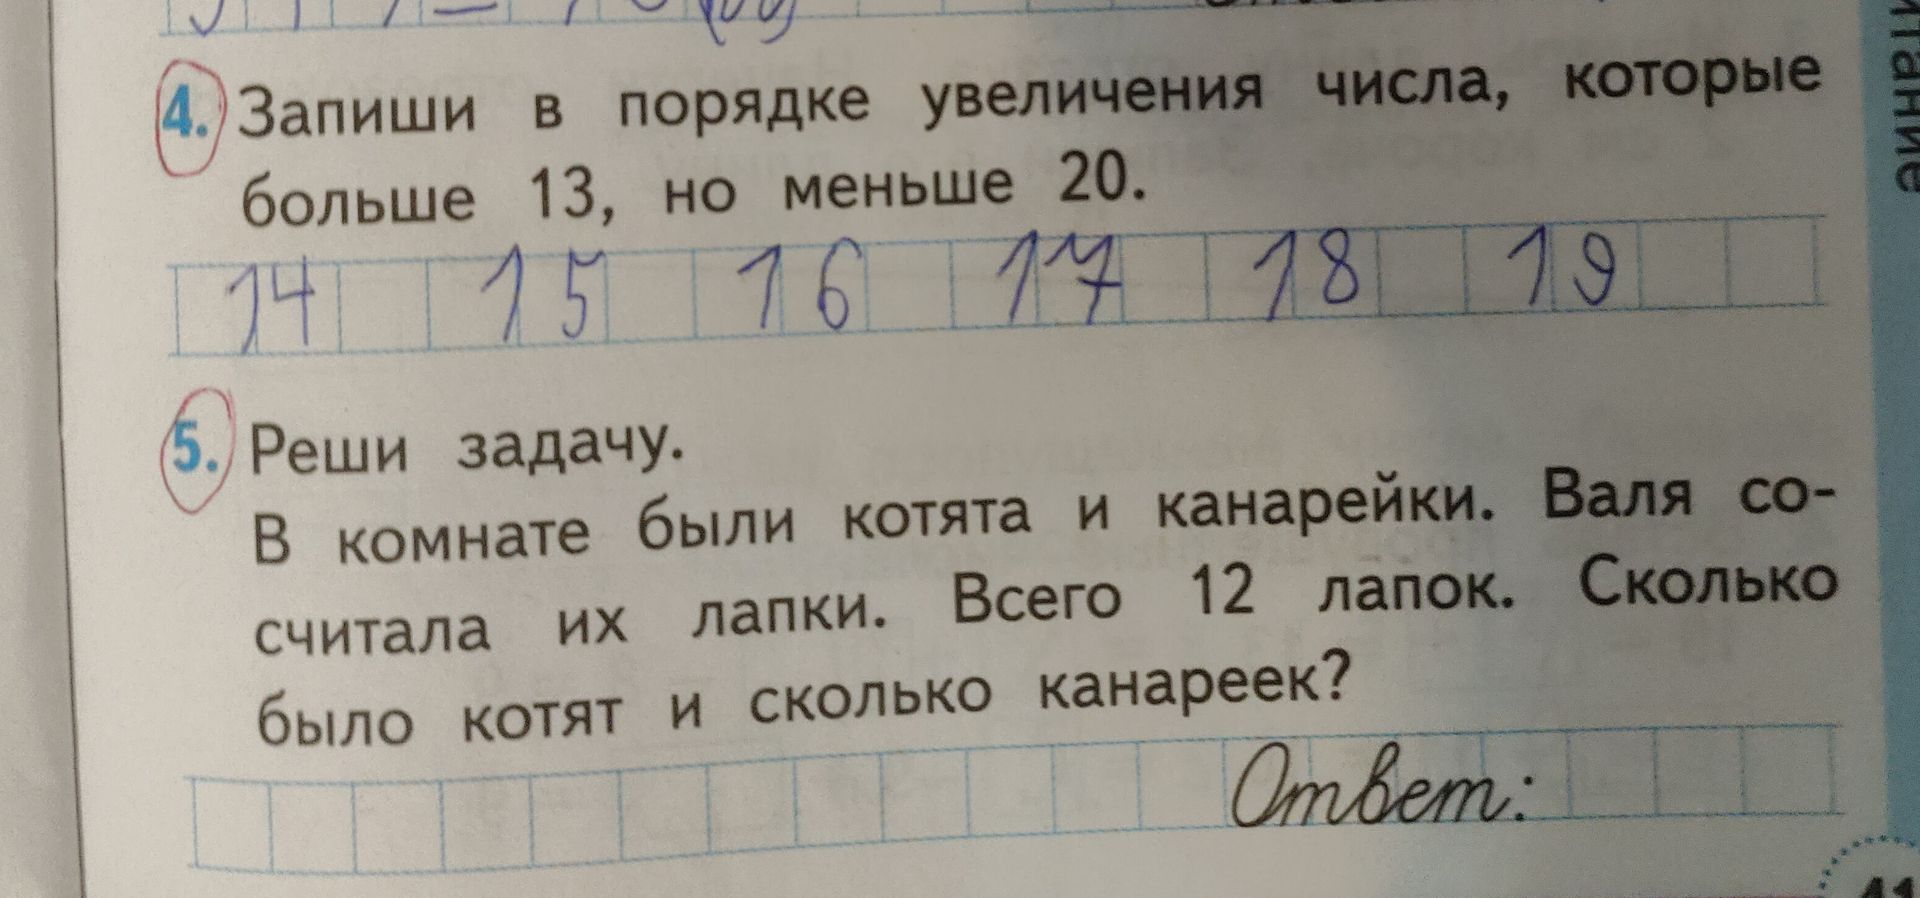 4. Запиши в порядке увеличения числа, которые
больше 13, но меньше 20.
14 15 16 17 18 19
5. Реши задачу.
В комнате были котята и канарейки. Валя со-
считала их лапки. Всего 12 лапок. Сколько
было котят и сколько канареек?
Ответ: